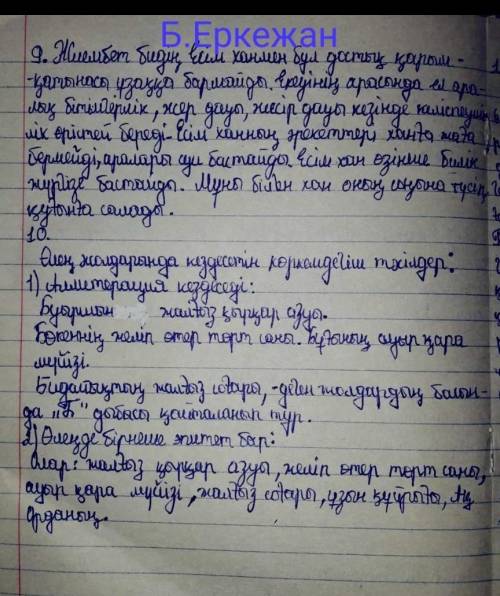 Б.Еркежан
9. Жиембет бидің Есім ханмен бұл достық қарым-
-қатынасы ұзаққа бармайды. Екеуінің арасында ел ара-
лық бітімгерлік, жер дауы, жесір дауы кезінде келіспеуші
лік өрістей береді. Есім ханның әрекеттері ханға жаға
бермейді, аралары суи бастайды. Есім хан өзінше билік
жүргізе бастайды. Мұны білген хан оның соңына түсіп,
қуғынға салады.
10.
Өлең жолдарында кездесетін көркемдегіш тәсілдер:
1) Аллитерация кездеседі:
Буыршын жалғыз қырқар азуы.
Бөкеннің желіп өтер төрт саны. Бұғының ауыр қара
мүйізі.
Бидайықтың жалғыз соғары, -деген жолдардың басын-
да „Б" дыбысы қайталанып тұр.
2) Өлеңде бірнеше эпитет бар:
Олар: жалғыз қырқар азуы, желіп өтер төрт саны,
ауыр қара мүйізі, жалғыз соғары, ұзын құйрығы, Ақ
Орданың.